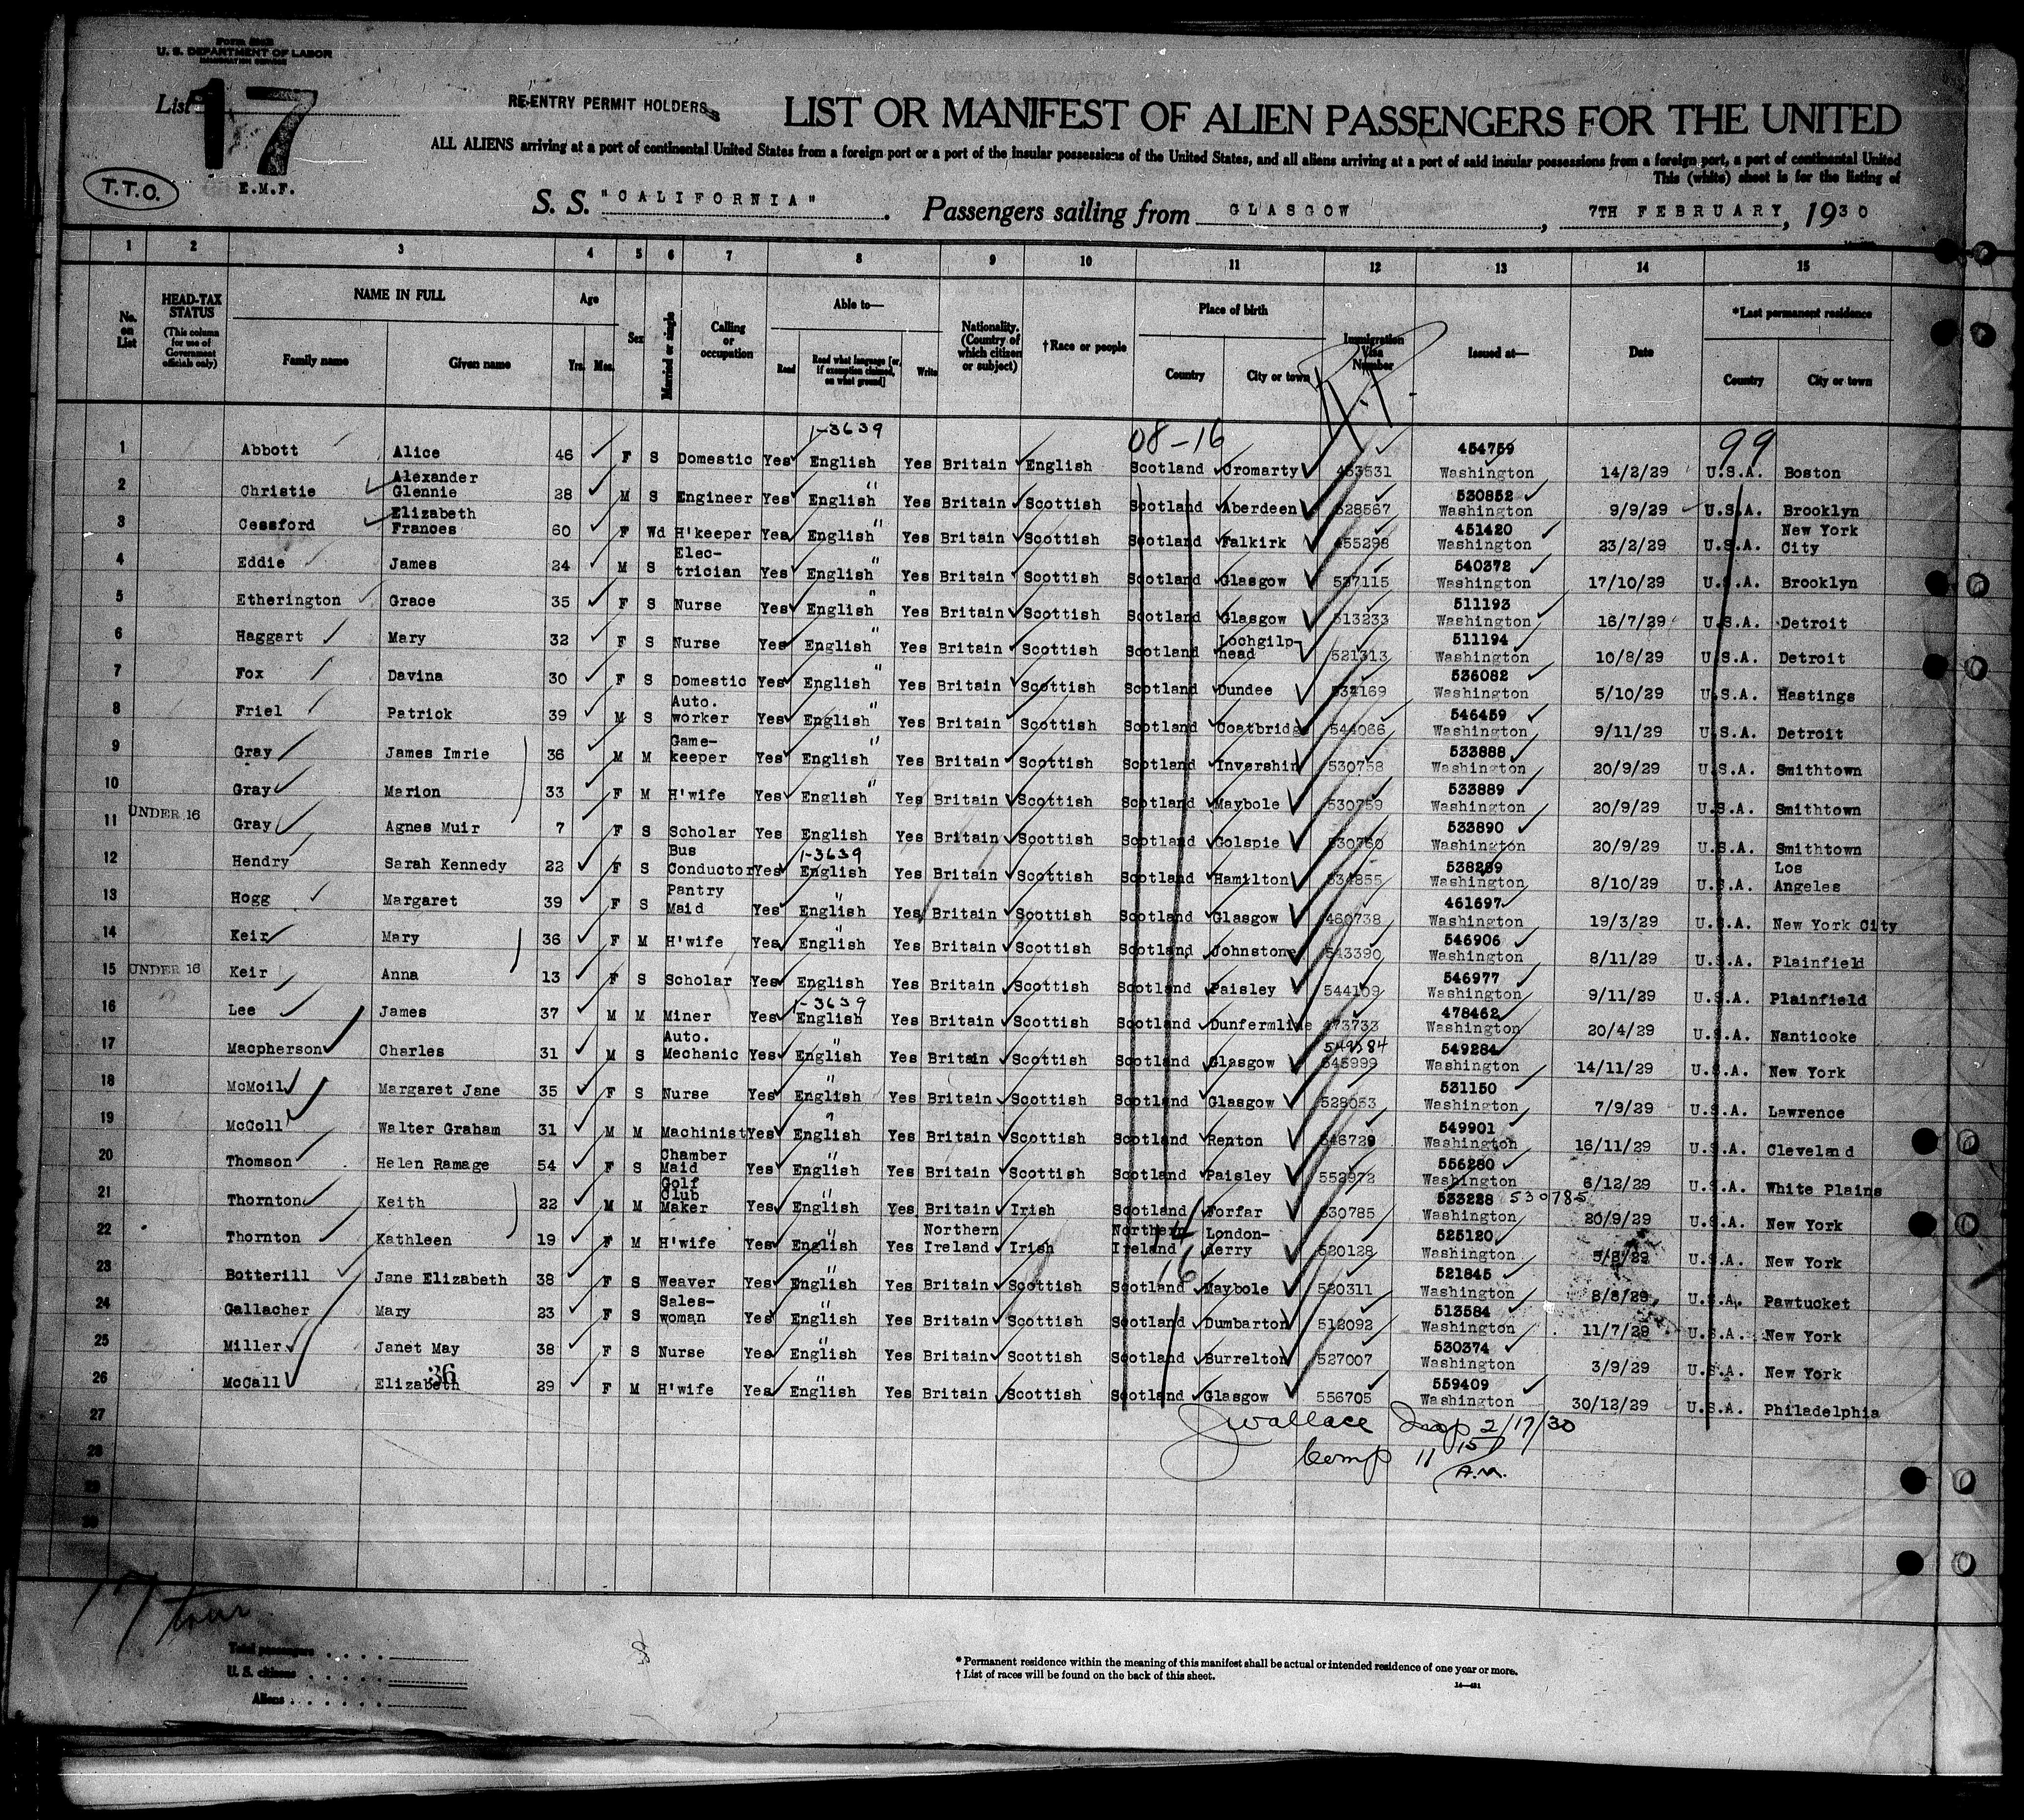 U. S. DEPARTMENT OF LABOR
List 17
RE-ENTRY PERMIT HOLDERS
LIST OR MANIFEST OF ALIEN PASSENGERS FOR THE UNITED
ALL ALIENS arriving at a port of continental United States from a foreign port or a port of the insular possessions of the United States, and all aliens arriving at a port of said insular possessions from a foreign port, a port of continental United
This (white) sheet is for the listing of
T.T.O.
E.M.F.
S. S. "CALIFORNIA". Passengers sailing from GLASGOW, 7TH FEBRUARY, 1930
1 2 3 4 5 6 7 8 9 10 11 12 13 14 15
No. on List HEAD-TAX STATUS (This column for use of Government officials only) NAME IN FULL Family name Given name Age Yrs. Mos. Sex Married or single Calling or occupation Able to— Read Read what language [or, if exemption claimed, on what ground] Write Nationality. (Country of which citizen or subject) †Race or people Place of birth Country City or town Immigration Visa Number Issued at— Date *Last permanent residence Country City or town
1-3639 08-16 99
1 Abbott Alice 46 F S Domestic Yes English Yes Britain English Scotland Cromarty 453531 454759 Washington 14/2/29 U.S.A. Boston
2 Christie Alexander Glennie 28 M S Engineer Yes English " Yes Britain Scottish Scotland Aberdeen 528567 530852 Washington 9/9/29 U.S.A. Brooklyn
3 Cessford Elizabeth Frances 60 F Wd H'keeper Yes English " Yes Britain Scottish Scotland Falkirk 455298 451420 Washington 23/2/29 U.S.A. New York City
4 Eddie James 24 M S Elec-trician Yes English " Yes Britain Scottish Scotland Glasgow 537115 540372 Washington 17/10/29 U.S.A. Brooklyn
5 Etherington Grace 35 F S Nurse Yes English " Yes Britain Scottish Scotland Glasgow 513233 511193 Washington 16/7/29 U.S.A. Detroit
6 Haggart Mary 32 F S Nurse Yes English " Yes Britain Scottish Scotland Lochgilp-head 521313 511194 Washington 10/8/29 U.S.A. Detroit
7 Fox Davina 30 F S Domestic Yes English " Yes Britain Scottish Scotland Dundee 534169 536082 Washington 5/10/29 U.S.A. Hastings
8 Friel Patrick 39 M S Auto. worker Yes English " Yes Britain Scottish Scotland Coatbridge 544066 546459 Washington 9/11/29 U.S.A. Detroit
9 Gray James Imrie 36 M M Game-keeper Yes English " Yes Britain Scottish Scotland Invershin 530758 533888 Washington 20/9/29 U.S.A. Smithtown
10 Gray Marion 33 F M H'wife Yes English " Yes Britain Scottish Scotland Maybole 530759 533889 Washington 20/9/29 U.S.A. Smithtown
11 UNDER 16 Gray Agnes Muir 7 F S Scholar Yes English Yes Britain Scottish Scotland Golspie 530760 533890 Washington 20/9/29 U.S.A. Smithtown
12 Hendry Sarah Kennedy 22 F S Bus Conductor Yes 1-3639 English Yes Britain Scottish Scotland Hamilton 534855 538289 Washington 8/10/29 U.S.A. Los Angeles
13 Hogg Margaret 39 F S Pantry Maid Yes English " Yes Britain Scottish Scotland Glasgow 460738 461697 Washington 19/3/29 U.S.A. New York City
14 Keir Mary 36 F M H'wife Yes English " Yes Britain Scottish Scotland Johnstone 543390 546906 Washington 8/11/29 U.S.A. Plainfield
15 UNDER 16 Keir Anna 13 F S Scholar Yes English Yes Britain Scottish Scotland Paisley 544109 546977 Washington 9/11/29 U.S.A. Plainfield
16 Lee James 37 M M Miner Yes 1-3639 English Yes Britain Scottish Scotland Dunfermline 473733 478462 Washington 20/4/29 U.S.A. Nanticoke
17 Macpherson Charles 31 M S Auto. Mechanic Yes English " Yes Britain Scottish Scotland Glasgow 545999 549284 Washington 14/11/29 U.S.A. New York
18 McMoil Margaret Jane 35 F S Nurse Yes English " Yes Britain Scottish Scotland Glasgow 528053 531150 Washington 7/9/29 U.S.A. Lawrence
19 McColl Walter Graham 31 M M Machinist Yes English " Yes Britain Scottish Scotland Renton 546729 549901 Washington 16/11/29 U.S.A. Cleveland
20 Thomson Helen Ramage 54 F S Chamber Maid Yes English " Yes Britain Scottish Scotland Paisley 552972 556280 Washington 6/12/29 U.S.A. White Plains
21 Thornton Keith 22 M M Golf Club Maker Yes English " Yes Britain Irish Scotland Forfar 530785 533228 530785 Washington 20/9/29 U.S.A. New York
22 Thornton Kathleen 19 F M H'wife Yes English " Yes Northern Ireland Irish Northern Ireland London-derry 520128 525120 Washington 5/8/29 U.S.A. New York
23 Botterill Jane Elizabeth 38 F S Weaver Yes English " Yes Britain Scottish Scotland Maybole 520311 521845 Washington 8/8/29 U.S.A. Pawtucket
24 Gallacher Mary 23 F S Sales-woman Yes English " Yes Britain Scottish Scotland Dumbarton 512092 513584 Washington 11/7/29 U.S.A. New York
25 Miller Janet May 38 F S Nurse Yes English " Yes Britain Scottish Scotland Burrelton 527007 530374 Washington 3/9/29 U.S.A. New York
26 McCall Elizabeth 36 29 F M H'wife Yes English " Yes Britain Scottish Scotland Glasgow 556705 559409 Washington 30/12/29 U.S.A. Philadelphia
27
28
29
30
J Wallace Insp 2/17/30
Comp 11 15 A.M.
Total passengers
U. S. citizens
Aliens
* Permanent residence within the meaning of this manifest shall be actual or intended residence of one year or more.
† List of races will be found on the back of this sheet.